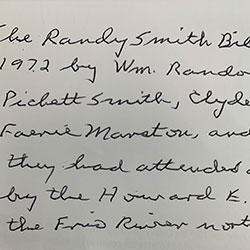 The Randy Smith Bil
1972 by Wm. Rando
Pickett Smith, Clyde
Faerie Marston, and
they had attended a
by the Howard E.
the Frio River nort